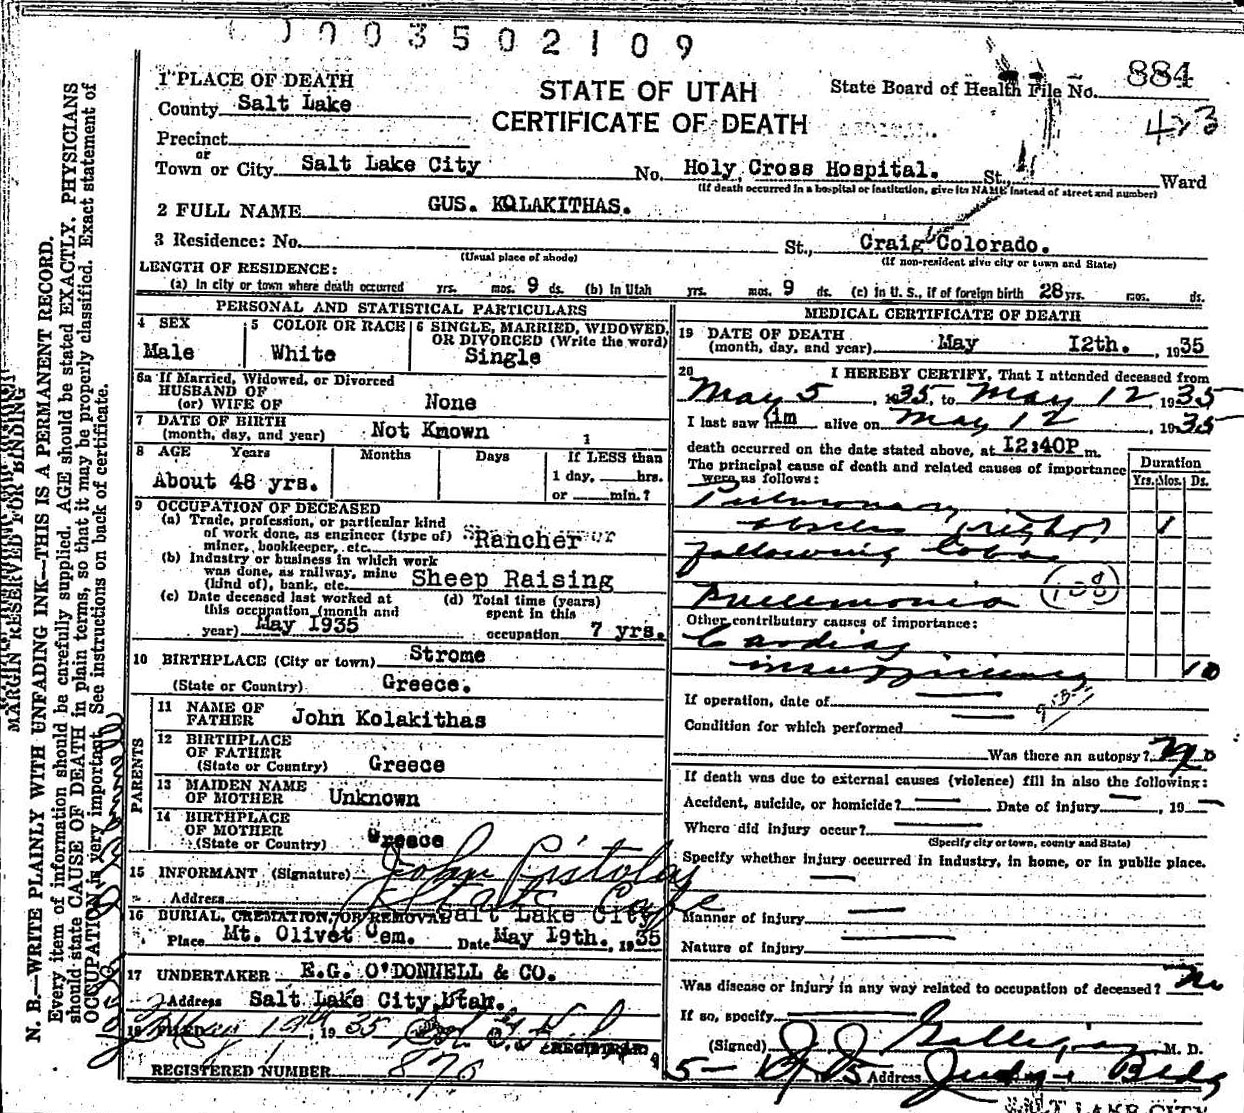 0003502109
1 PLACE OF DEATH
STATE OF UTAH
CERTIFICATE OF DEATH
State Board of Health File No. 884
423
County Salt Lake
Precinct
or
Town or City Salt Lake City No. Holy Cross Hospital. St., Ward
(If death occurred in a hospital or institution, give its NAME instead of street and number)
2 FULL NAME GUS. KOLAKITHAS.
3 Residence: No. St., Craig Colorado.
(Usual place of abode) (If non-resident give city or town and State)
LENGTH OF RESIDENCE:
(a) In city or town where death occurred yrs. mos. 9 ds. (b) In Utah yrs. mos. 9 ds. (c) In U. S., if of foreign birth 28 yrs. mos. ds.
PERSONAL AND STATISTICAL PARTICULARS
4 SEX Male
5 COLOR OR RACE White
6 SINGLE, MARRIED, WIDOWED, OR DIVORCED (Write the word) Single
6a If Married, Widowed, or Divorced
HUSBAND OF
(or) WIFE OF None
7 DATE OF BIRTH
(month, day, and year) Not Known
8 AGE Years Months Days If LESS than
About 48 yrs. 1 day, hrs.
or min.?
9 OCCUPATION OF DECEASED
(a) Trade, profession, or particular kind
of work done, as engineer (type of)
miner, bookkeeper, etc. Rancher
(b) Industry or business in which work
was done, as railway, mine
(kind of), bank, etc. Sheep Raising
(c) Date deceased last worked at
this occupation (month and
year) May 1935
(d) Total time (years)
spent in this
occupation 7 yrs.
10 BIRTHPLACE (City or town) Strome
(State or Country) Greece.
PARENTS
11 NAME OF
FATHER John Kolakithas
12 BIRTHPLACE
OF FATHER
(State or Country) Greece
13 MAIDEN NAME
OF MOTHER Unknown
14 BIRTHPLACE
OF MOTHER
(State or Country) Greece
15 INFORMANT (Signature) John Pistolas
Address
16 BURIAL, CREMATION, OR REMOVAL Salt Lake City
Place Mt. Olivet Cem. Date May 19th. , 1935
17 UNDERTAKER E.G. O'DONNELL & CO.
Address Salt Lake City, Utah.
18 FILED 19th 1935
REGISTRAR
REGISTERED NUMBER 876
MEDICAL CERTIFICATE OF DEATH
19 DATE OF DEATH
(month, day, and year) May 12th. , 1935
20 I HEREBY CERTIFY, That I attended deceased from
May 5 , 1935, to May 12, 1935
I last saw him alive on May 12 , 1935
death occurred on the date stated above, at 12:40P m.
The principal cause of death and related causes of importance
were as follows:
Duration
Yrs. Mos. Ds.
Pulmonary
abscess (right) 1
following lobar
Pneumonia (108)
Other contributory causes of importance:
Cardiac
insufficiency 10
If operation, date of
Condition for which performed
Was there an autopsy? No
If death was due to external causes (violence) fill in also the following:
Accident, suicide, or homicide? Date of injury , 19
Where did injury occur?
(Specify city or town, county and State)
Specify whether injury occurred in industry, in home, or in public place.
Manner of injury
Nature of injury
Was disease or injury in any way related to occupation of deceased? No
If so, specify
(Signed) J J Galligan M. D.
Address Judge Bldg
SALT LAKE CITY
MARGIN RESERVED FOR BINDING
N. B.—WRITE PLAINLY WITH UNFADING INK—THIS IS A PERMANENT RECORD.
Every item of information should be carefully supplied. AGE should be stated EXACTLY. PHYSICIANS
should state CAUSE OF DEATH in plain terms, so that it may be properly classified. Exact statement of
OCCUPATION is very important. See instructions on back of certificate.